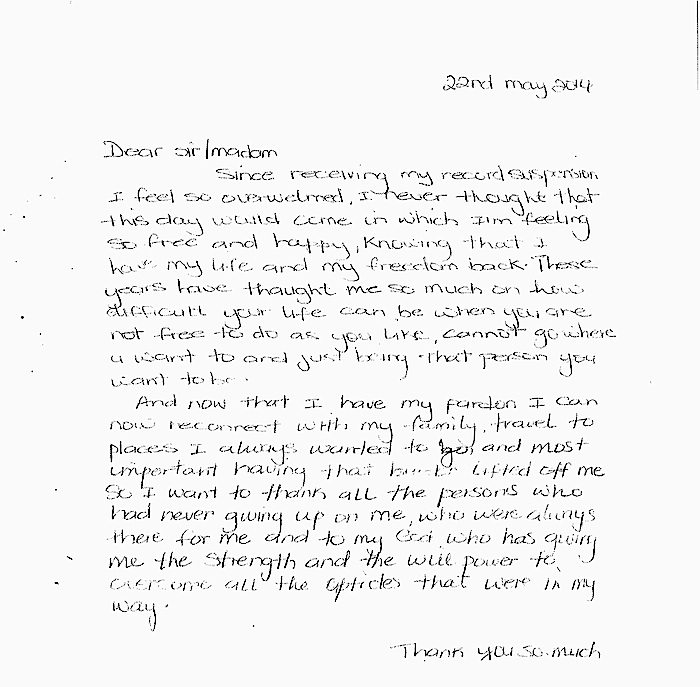 22nd may 2014
Dear sir/madam
Since receiving my record suspension
I feel so overwelmed, I never thought that
this day would come in which I'm feeling
so free and happy, Knowing that I
have my life and my freedom back. These
years have thought me so much on how
difficult your life can be when you are
not free to do as you like, cannot go where
u want to and just being that person you
want to be.
And now that I have my pardon I can
now reconnect with my family, travel to
places I always wanted to go, and most
important having that lifted off me
So I want to thank all the persons who
had never giving up on me, who were always
there for me and to my God who has giving
me the Strength and the will power to
overcome all the opticles that were in my
way.
Thank you so much